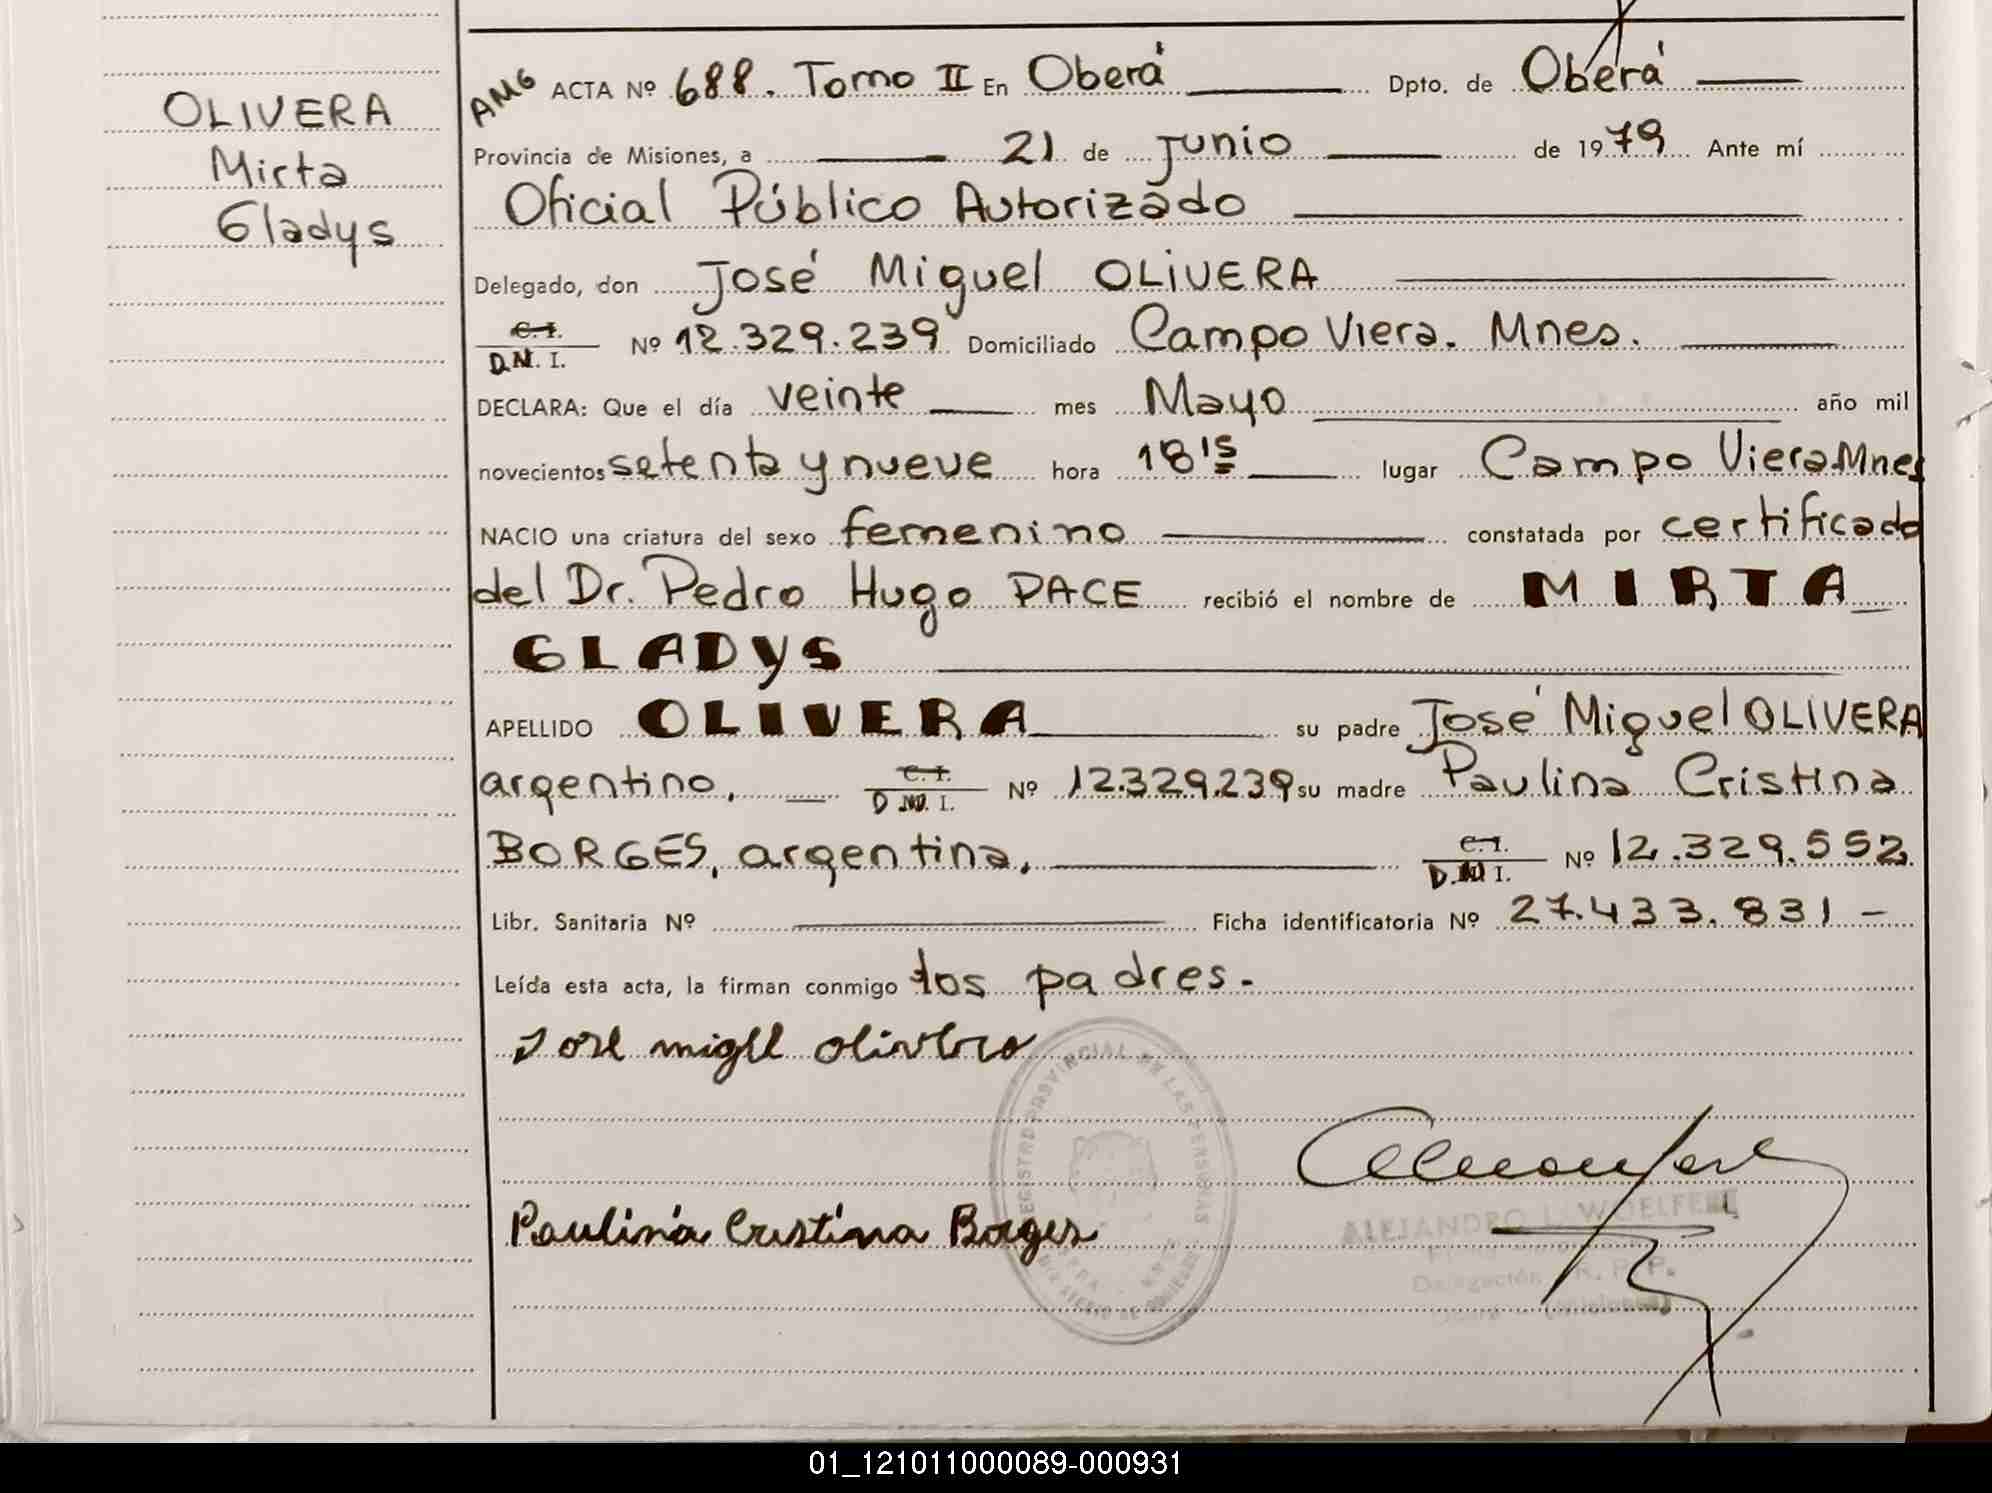 OLIVERA
Mirta
Gladys
AMG ACTA Nº 688. Tomo II En Oberá Dpto. de Oberá
Provincia de Misiones, a 21 de junio de 1979 Ante mí
Oficial Público Autorizado
Delegado, don José Miguel OLIVERA
C.I.
D.N.I. Nº 12.329.239 Domiciliado Campo Viera. Mnes.
DECLARA: Que el día veinte mes Mayo año mil
novecientos setenta y nueve hora 18'15 lugar Campo Viera Mnes
NACIO una criatura del sexo femenino constatada por certificado
del Dr. Pedro Hugo PACE recibió el nombre de MIRTA
GLADYS
APELLIDO OLIVERA su padre José Miguel OLIVERA
argentino. C.I. D.N.I. Nº 12.329.239 su madre Paulina Cristina
BORGES, argentina. C.I. D.N.I. Nº 12.329.552
Libr. Sanitaria Nº Ficha identificatoria Nº 27.433.831 -
Leída esta acta, la firman conmigo los padres.-
Jose migel olivera
REGISTRO PROVINCIAL DE LAS PERSONAS
Paulina Cristina Borges
ALEJANDRO L. WOELFERT
Delegación R. P. P.
Oberá - (Misiones)
01_121011000089-000931